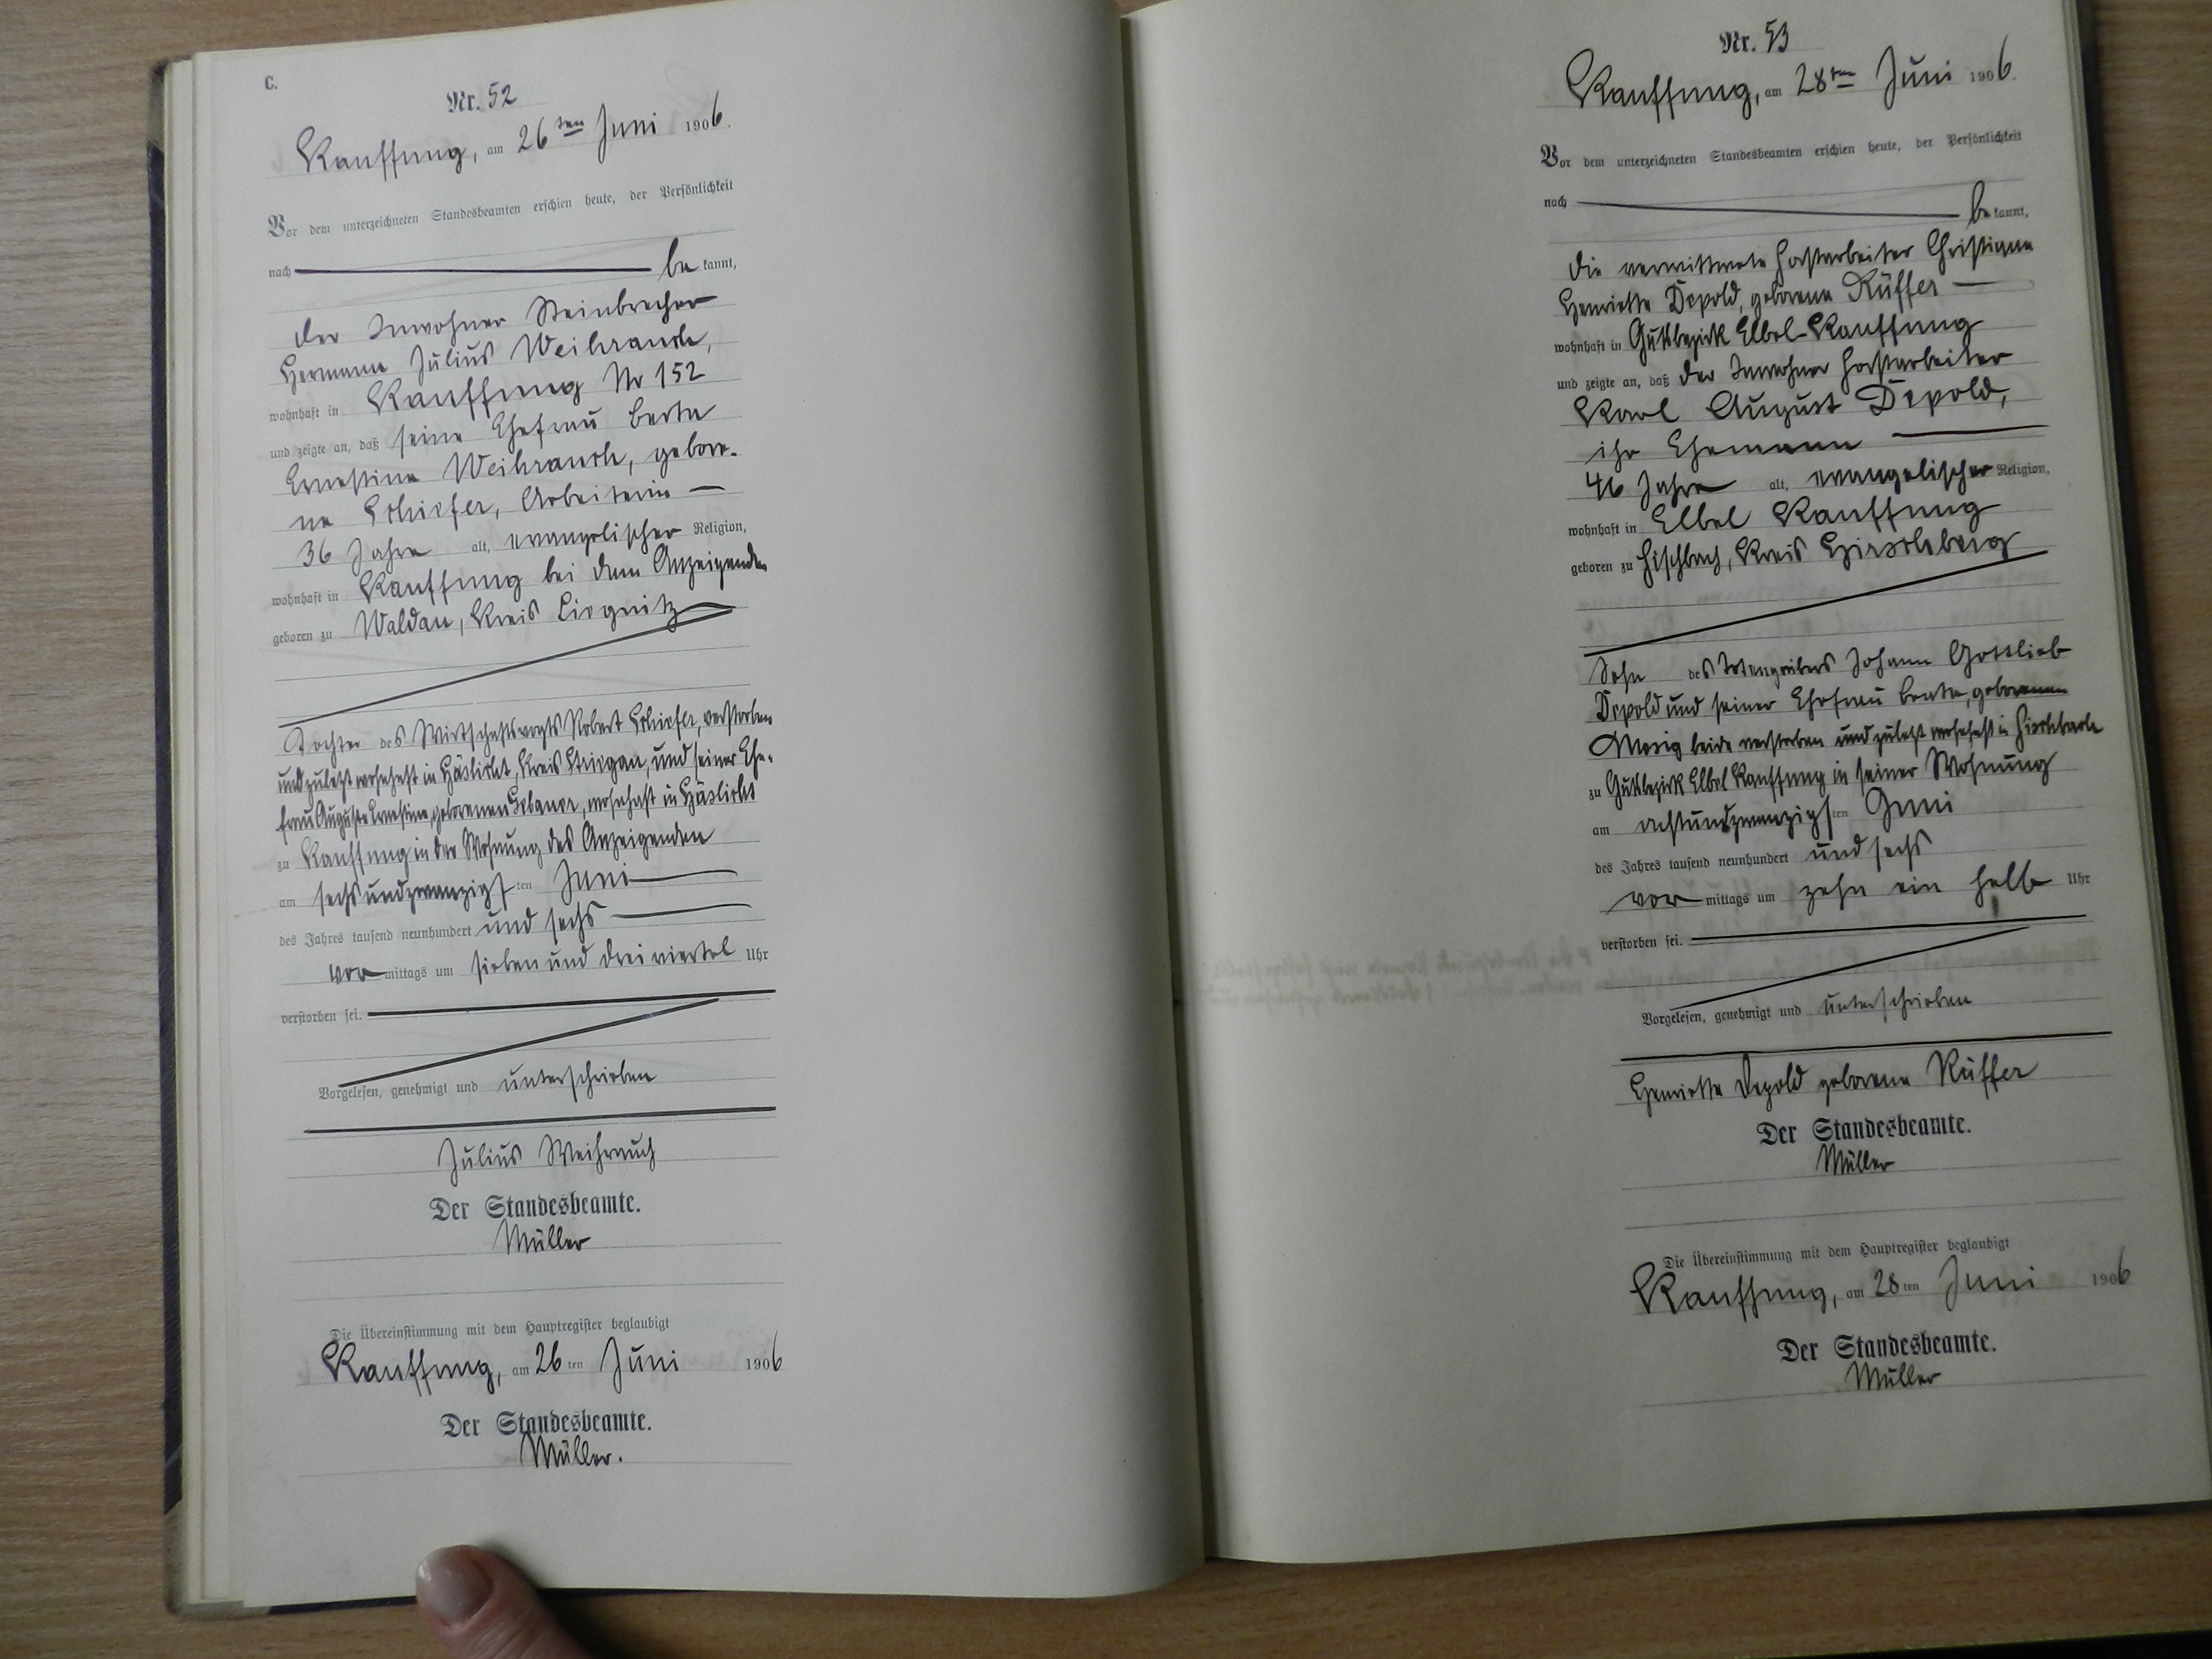 C.
Nr. 52
Kauffung, am 26ten Juni 1906.
Vor dem unterzeichneten Standesbeamten erschien heute, der Persönlichkeit
nach be kannt,
der Inwohner Steinbrecher
Hermann Julius Weihrauch,
wohnhaft in Kauffung Nr 152
und zeigte an, daß seine Ehefrau Berta
Ernestine Weihrauch, gebore-
ne Schiefer, Arbeiterin —
36 Jahre alt, evangelischer Religion,
wohnhaft in Kauffung bei dem Anzeigenden
geboren zu Waldau, Kreis Liegnitz
Tochter des Wirtschaftsvogts Robert Schiefer, verstorben
und zuletzt wohnhaft in Häslicht, Kreis Striegau, und seiner Ehe-
frau Auguste Ernestine, geborenen Gebauer, wohnhaft in Häslicht
zu Kauffung in der Wohnung des Anzeigenden
am sechsundzwanzigsten Juni
des Jahres tausend neunhundert und sechs
vor mittags um sieben und dreiviertel Uhr
verstorben sei.
Vorgelesen, genehmigt und unterschrieben
Julius Weihrauch
Der Standesbeamte.
Müller
Die Übereinstimmung mit dem Hauptregister beglaubigt
Kauffung, am 26ten Juni 1906
Der Standesbeamte.
Müller.
Nr. 53
Kauffung, am 28ten Juni 1906.
Vor dem unterzeichneten Standesbeamten erschien heute, der Persönlichkeit
nach be kannt,
die verwittwete Forstarbeiter Christiane
Henriette Depold, geborene Rüffer —
wohnhaft in Gutsbezirk Elbel-Kauffung
und zeigte an, daß der Inwohner Forstarbeiter
Karl August Depold,
ihr Ehemann
46 Jahre alt, evangelischer Religion,
wohnhaft in Elbel Kauffung
geboren zu Fischbach, Kreis Hirschberg
Sohn des Totengräbers Johann Gottlieb
Depold und seiner Ehefrau Beate, geborenen
beide verstorben und zuletzt wohnhaft in Fischbach
zu Gutsbezirk Elbel Kauffung in seiner Wohnung
am achtundzwanzigsten Juni
des Jahres tausend neunhundert und sechs
vor mittags um zehn ein halb Uhr
verstorben sei.
Vorgelesen, genehmigt und unterschrieben
Henriette Depold geborene Rüffer
Der Standesbeamte.
Müller
Die Übereinstimmung mit dem Hauptregister beglaubigt
Kauffung, am 28ten Juni 1906
Der Standesbeamte.
Müller